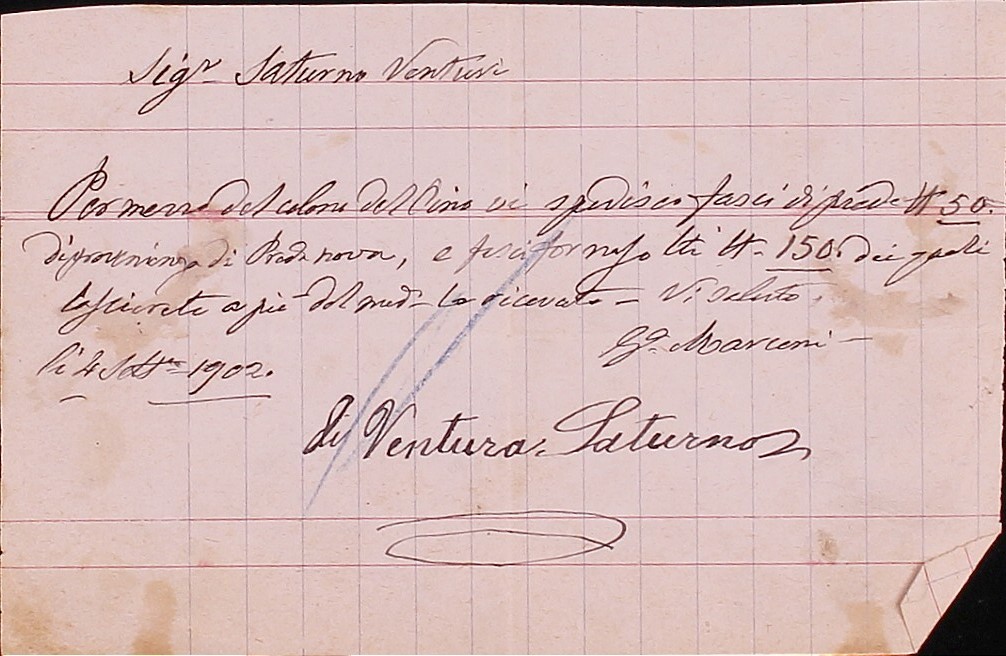 Sigr Saturno Venturi
Per mezzo del colono del Pino vi spedisco fasci di prede N 50.
di provenienza di Preda nova, e fasci N. 150. dei quali
lascierete a piè del med. la ricevuta - Vi saluto.
Marconi -
li 4 Sett. 1902.
di Ventura Saturno